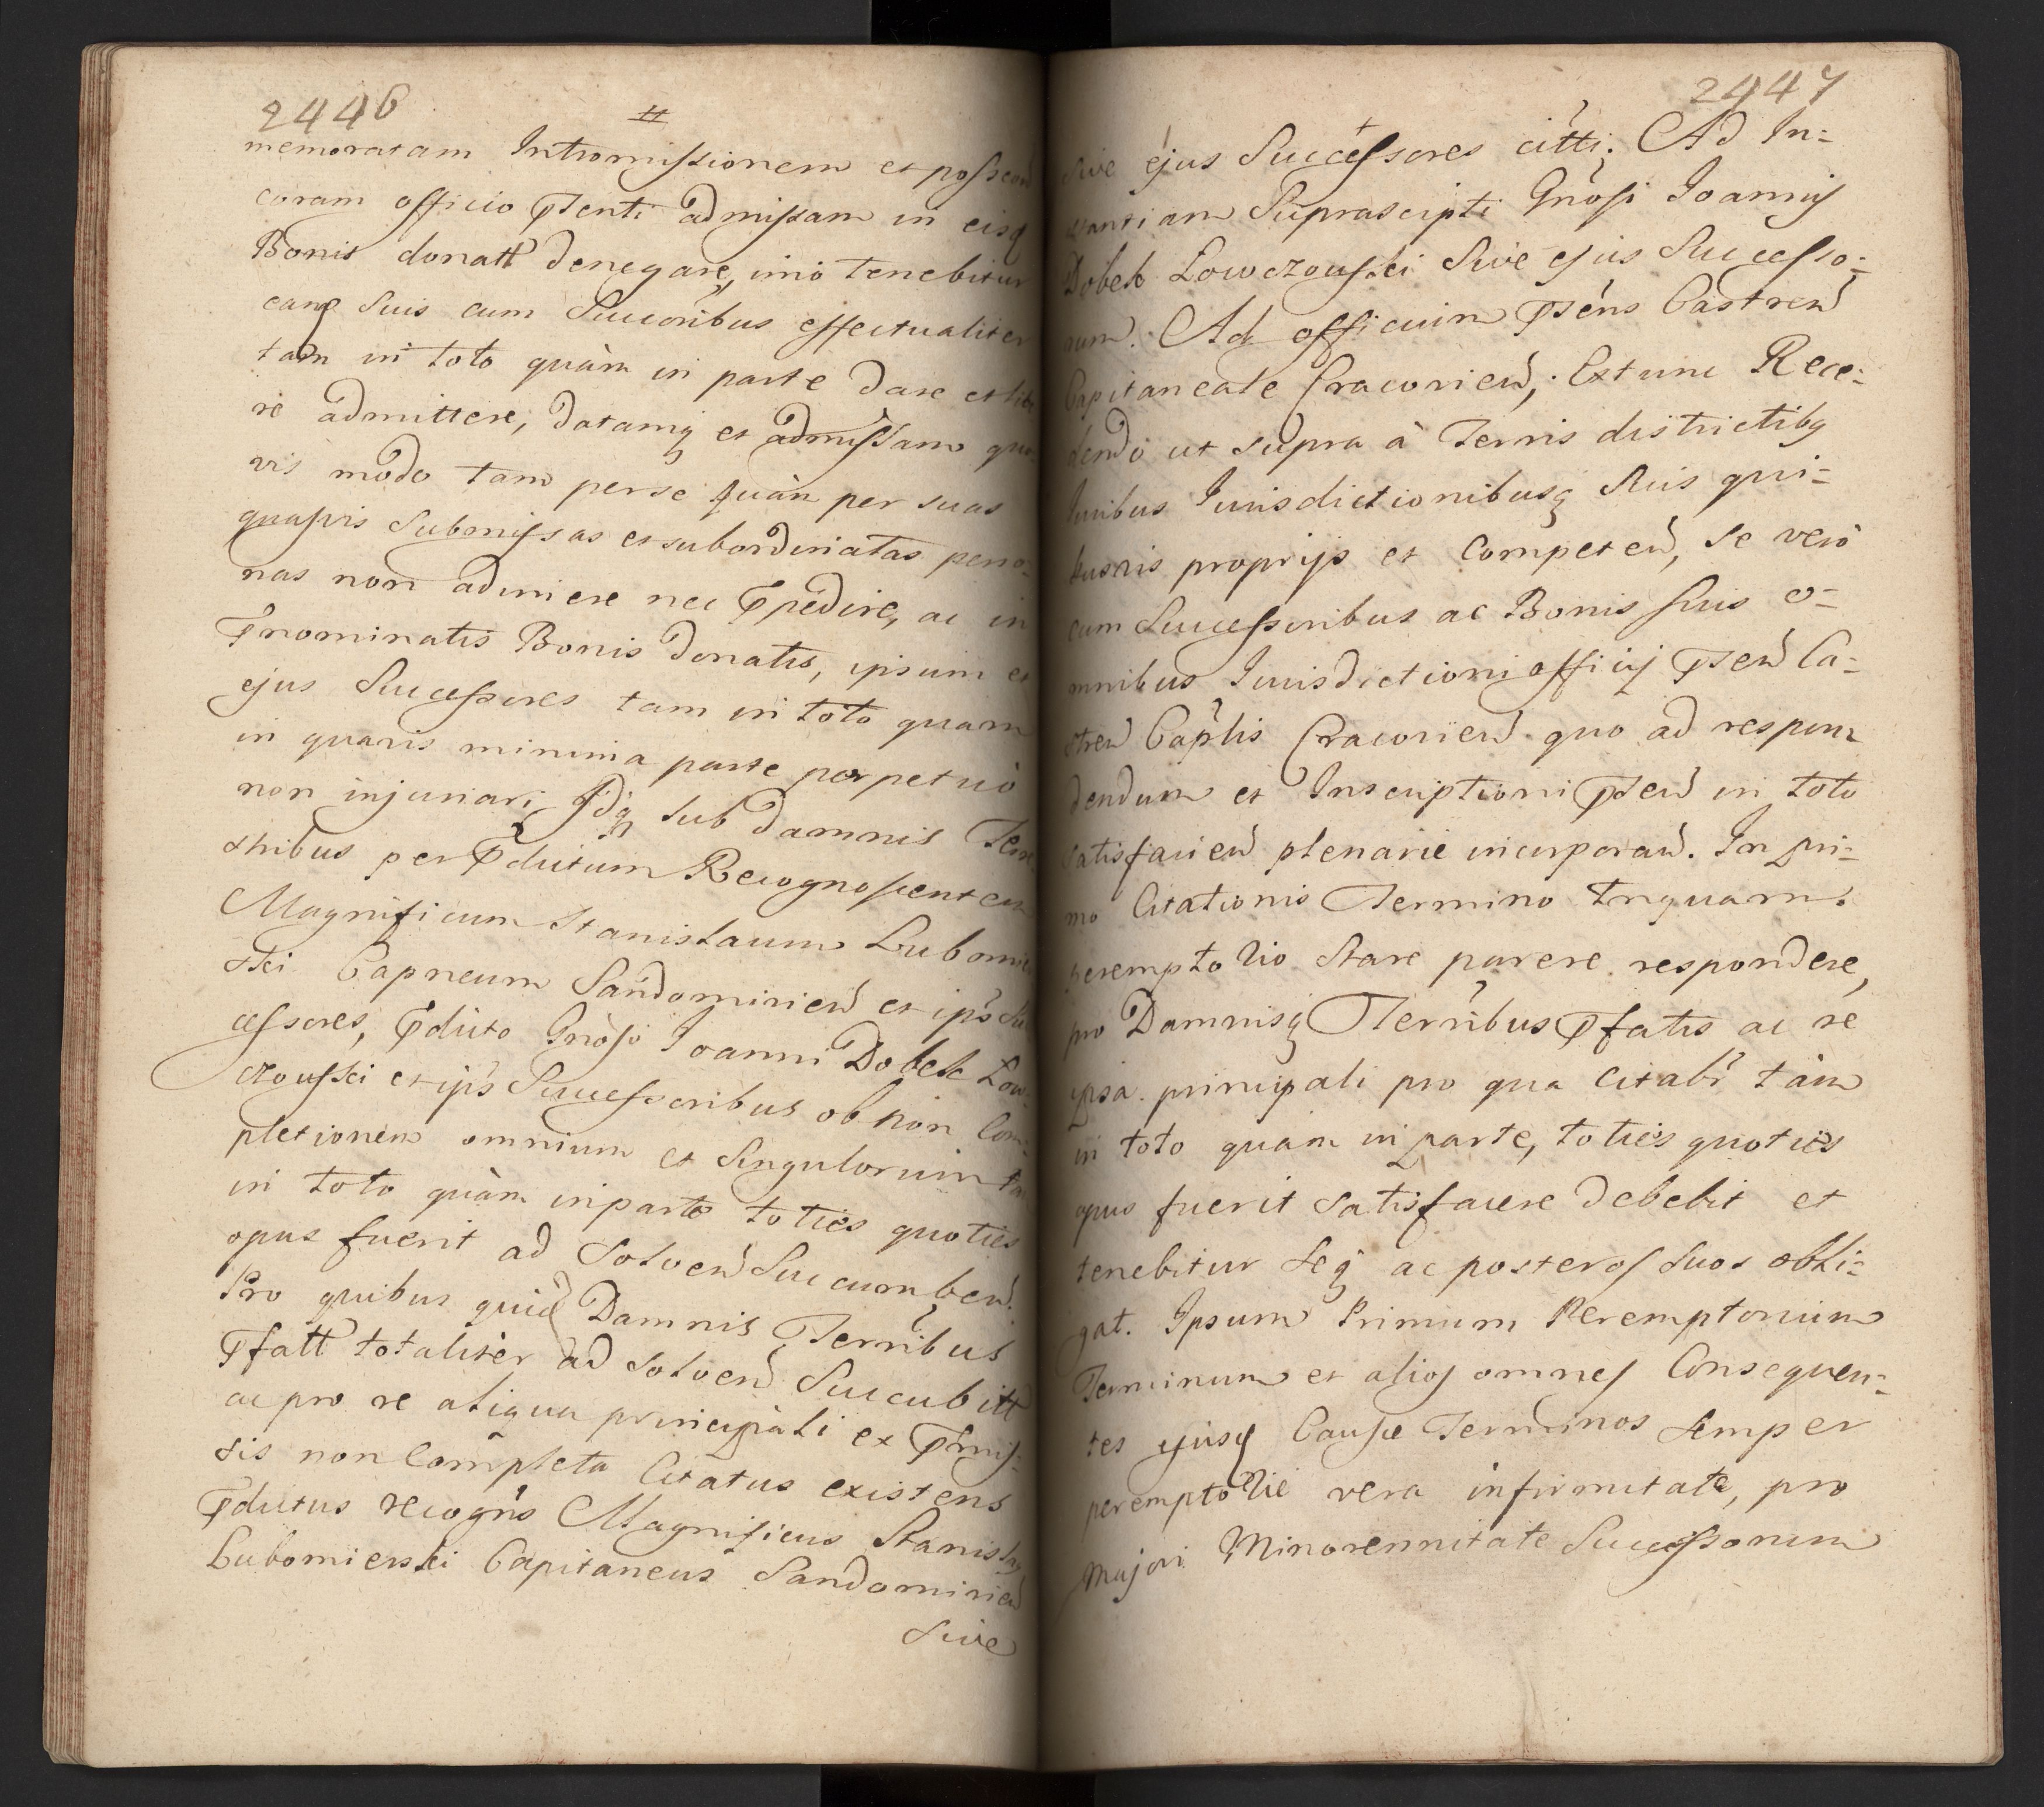 2446
memoratam Intromissionem et possessio
coram officio pñti admissam in eisq
Bonis donatt denegare, imò tenebitur
eamq Suis cum Succoribus effectualiter
tam in toto quàm in parte dare et libe
re admittere, datamq et admissam quo-
vis modo tam per se quàm per suas
quasvis Submissas et subordinatas perso-
nas non adimere nec p̄pedire, ac in
p̄nominatis Bonis donatis, ipsum et
ejus Successores tam in toto quam
in quavis minima parte perpetuò
non injuriari, Idq sub damnis Terre
stribus per p̄dictum Recognoscentem
Magnificum Stanislaum Lubomir
ski Capneum Sandomirien et ips Su
cessores, p̄dicto Gnoso Joanni Dobek Low-
czouski et ips Successoribus ob non Com-
pletionem omnium et Singulorum tam
in toto quàm in parte toties quoties
opus fuerit ad Solven Succumben.
Pro quibus quid Damnis Terribus
p̄fatt totaliter ad Solven Succubitt
ac pro re aliqua principali ex p̄mis-
sis non Completa Citatus existens
p̄dictus recogns Magnificus Stanislaq
Lubomierski Capitaneus Sandomirien
Sive
2447
Sive ejus Successores citti. Ad In-
stantiam Suprascipti Gnosi Joannis
Dobek Lowczouski Sive ejus Successo-
rum. Ad officium p̄sens Castren
Capitaneale Cracovien, Extunc Rece-
dendo ut supra à Terris districtibq
Iuribus Iurisdictionibusq Suis qui-
busvis proprijs et Competen, Se verò
cum Successoribus ac Bonis suis o-
mnibus Iurisdictioni officij p̄sen Ca-
stren Caplis Cracovien quo ad respon-
dendum et Inscriptioni p̄sen in toto
satisfacien plenarie incorporan. In pri-
mo Citationis Termino tnquam
peremptorio Stare parere respondere,
pro Damnisq Terribus p̄fatis ac re
ipsa principali pro qua Citabr tàm
in toto quàm in parte, toties quoties
opus fuerit Satisfacere debebit et
tenebitur Seq ac posteros suos obli-
gat. Ipsum Primum Peremptorium
Terminum et alios omnes Consequen-
tes ejusq Causæ Terminos Semper
peremptorie vera infirmitate, pro
majori Minorennitate Successorum